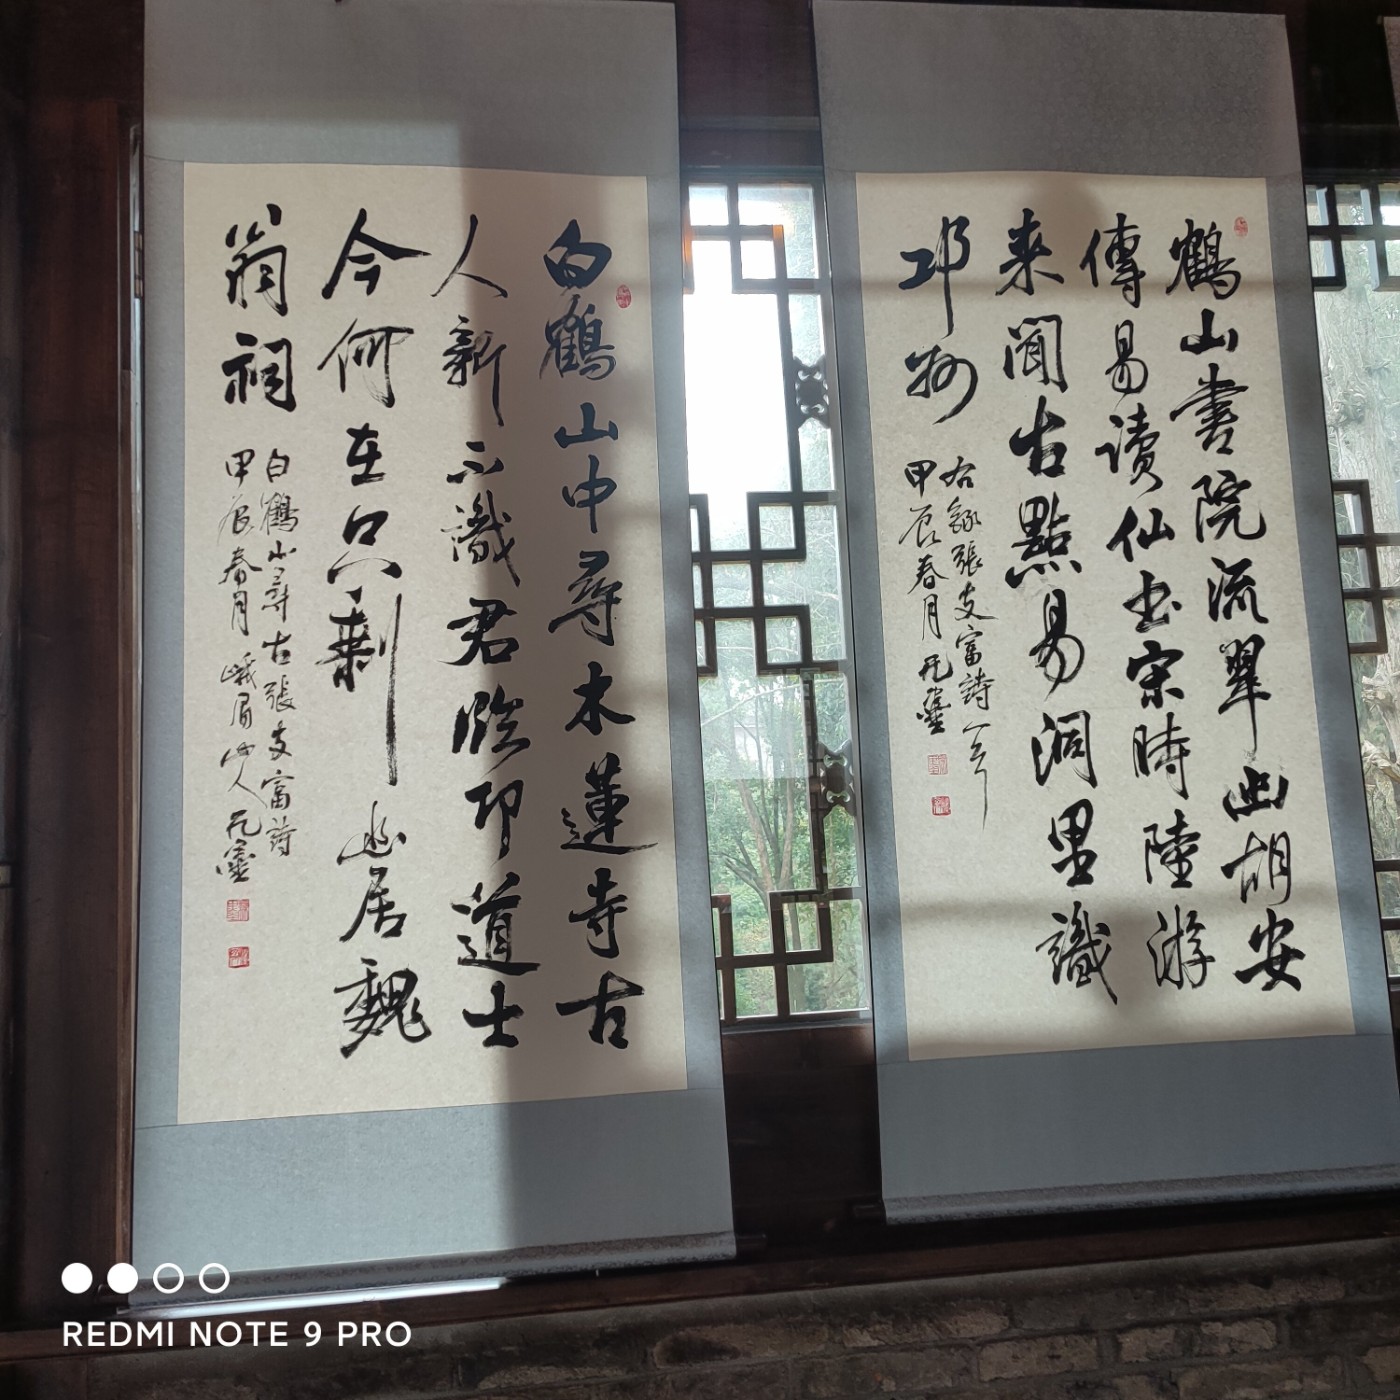 鶴山書院流翠幽胡安
傳易讀仙書宋時陸游
来聞古點易洞里識
邛州
右錄張支富詩一首
甲辰春月
白鶴山中尋木蓮寺古
人新不識君臨邛道士
今何在只剩幽居魏
翁祠
白鶴山尋古張支富詩
甲辰春月峨眉山人
REDMI NOTE 9 PRO